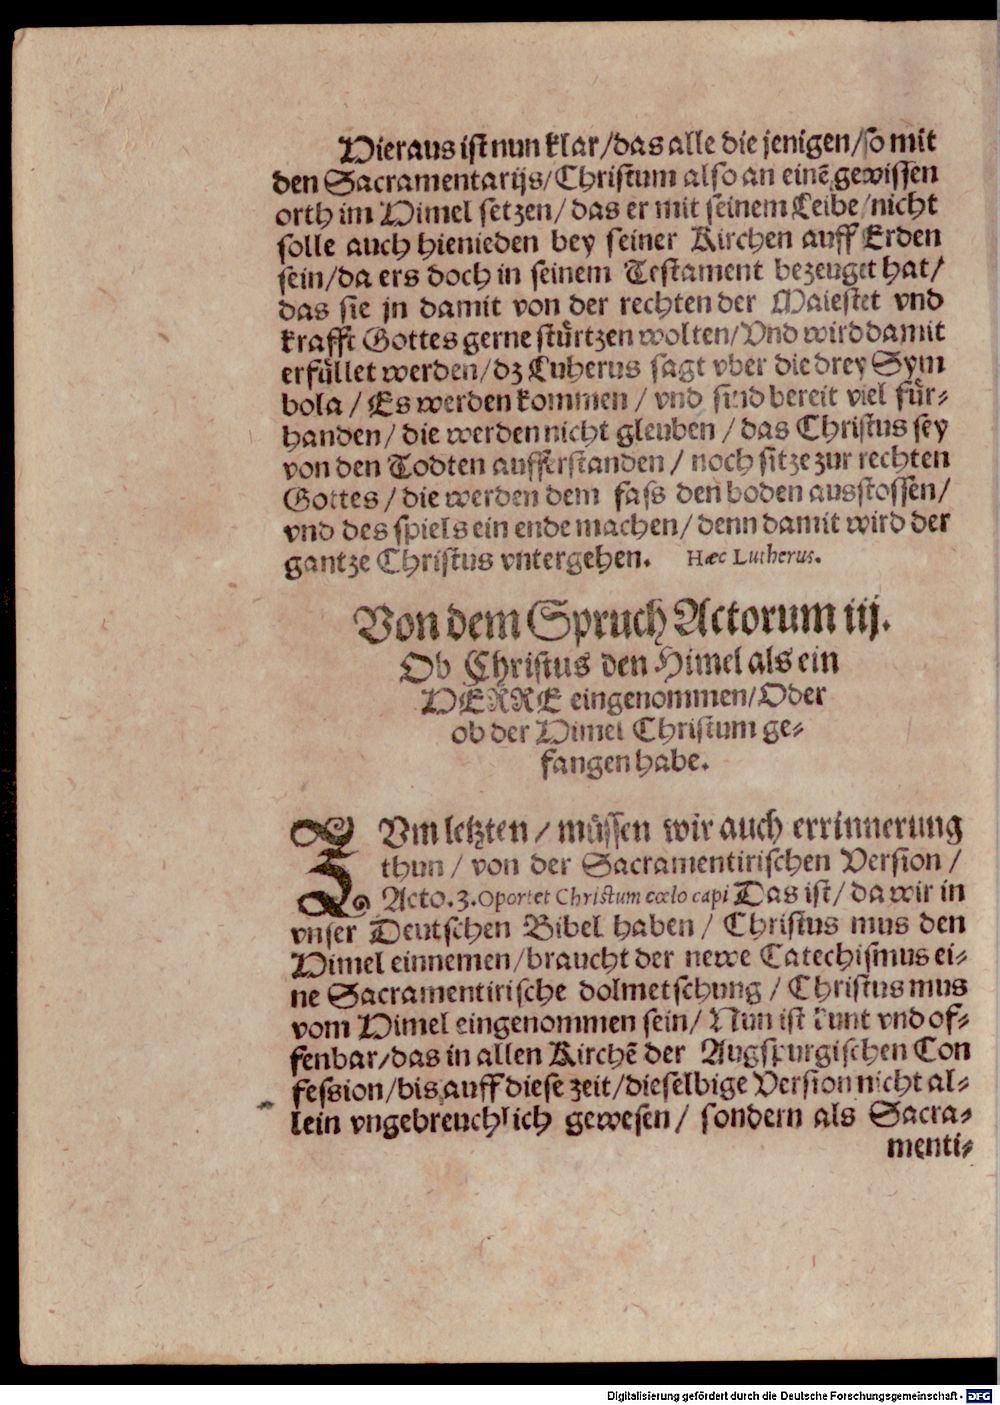 Hieraus ist nun klar/das alle die jenigen/so mit
den Sacramentarijs/Christum also an einē gewissen
orth im Himel setzen/das er mit seinem Leibe/nicht
solle auch hienieden bey seiner Kirchen auff Erden
sein/da ers doch in seinem Testament bezeuget hat/
das sie jn damit von der rechten der Maiestet vnd
krafft Gottes gerne stürtzen wolten/Vnd wird damit
erfüllet werden/dz Luherus sagt vber die drey Sym
bola/Es werden kommen/vnd sind bereit viel für-
handen/die werden nicht gleuben/das Christus sey
von den Todten aufferstanden/noch sitze zur rechten
Gottes/die werden dem fass den boden ausstossen/
vnd des spiels ein ende machen/denn damit wird der
gantze Christus vntergehen. Hæc Lutherus.
Von dem Spruch Actorum iij.
Ob Christus den Himel als ein
HERRE eingenommen/Oder
ob der Himel Christum ge-
fangen habe.
ZVm letzten/müssen wir auch errinnerung
thun/von der Sacramentirischen Version/
Acto.3. Oportet Christum cœlo capi Das ist/da wir in
vnser Deutschen Bibel haben/Christus mus den
Himel einnemen/braucht der newe Catechismus ei-
ne Sacramentirische dolmetschung/Christus mus
vom Himel eingenommen sein/Nun ist kunt vnd of-
fenbar/das in allen Kirchē der Augspurgischen Con
fession/bis auff diese zeit/dieselbige Version nicht al-
lein vngebreuchlich gewesen/sondern als Sacra-
menti-
Digitalisierung gefördert durch die Deutsche Forschungsgemeinschaft - DFG